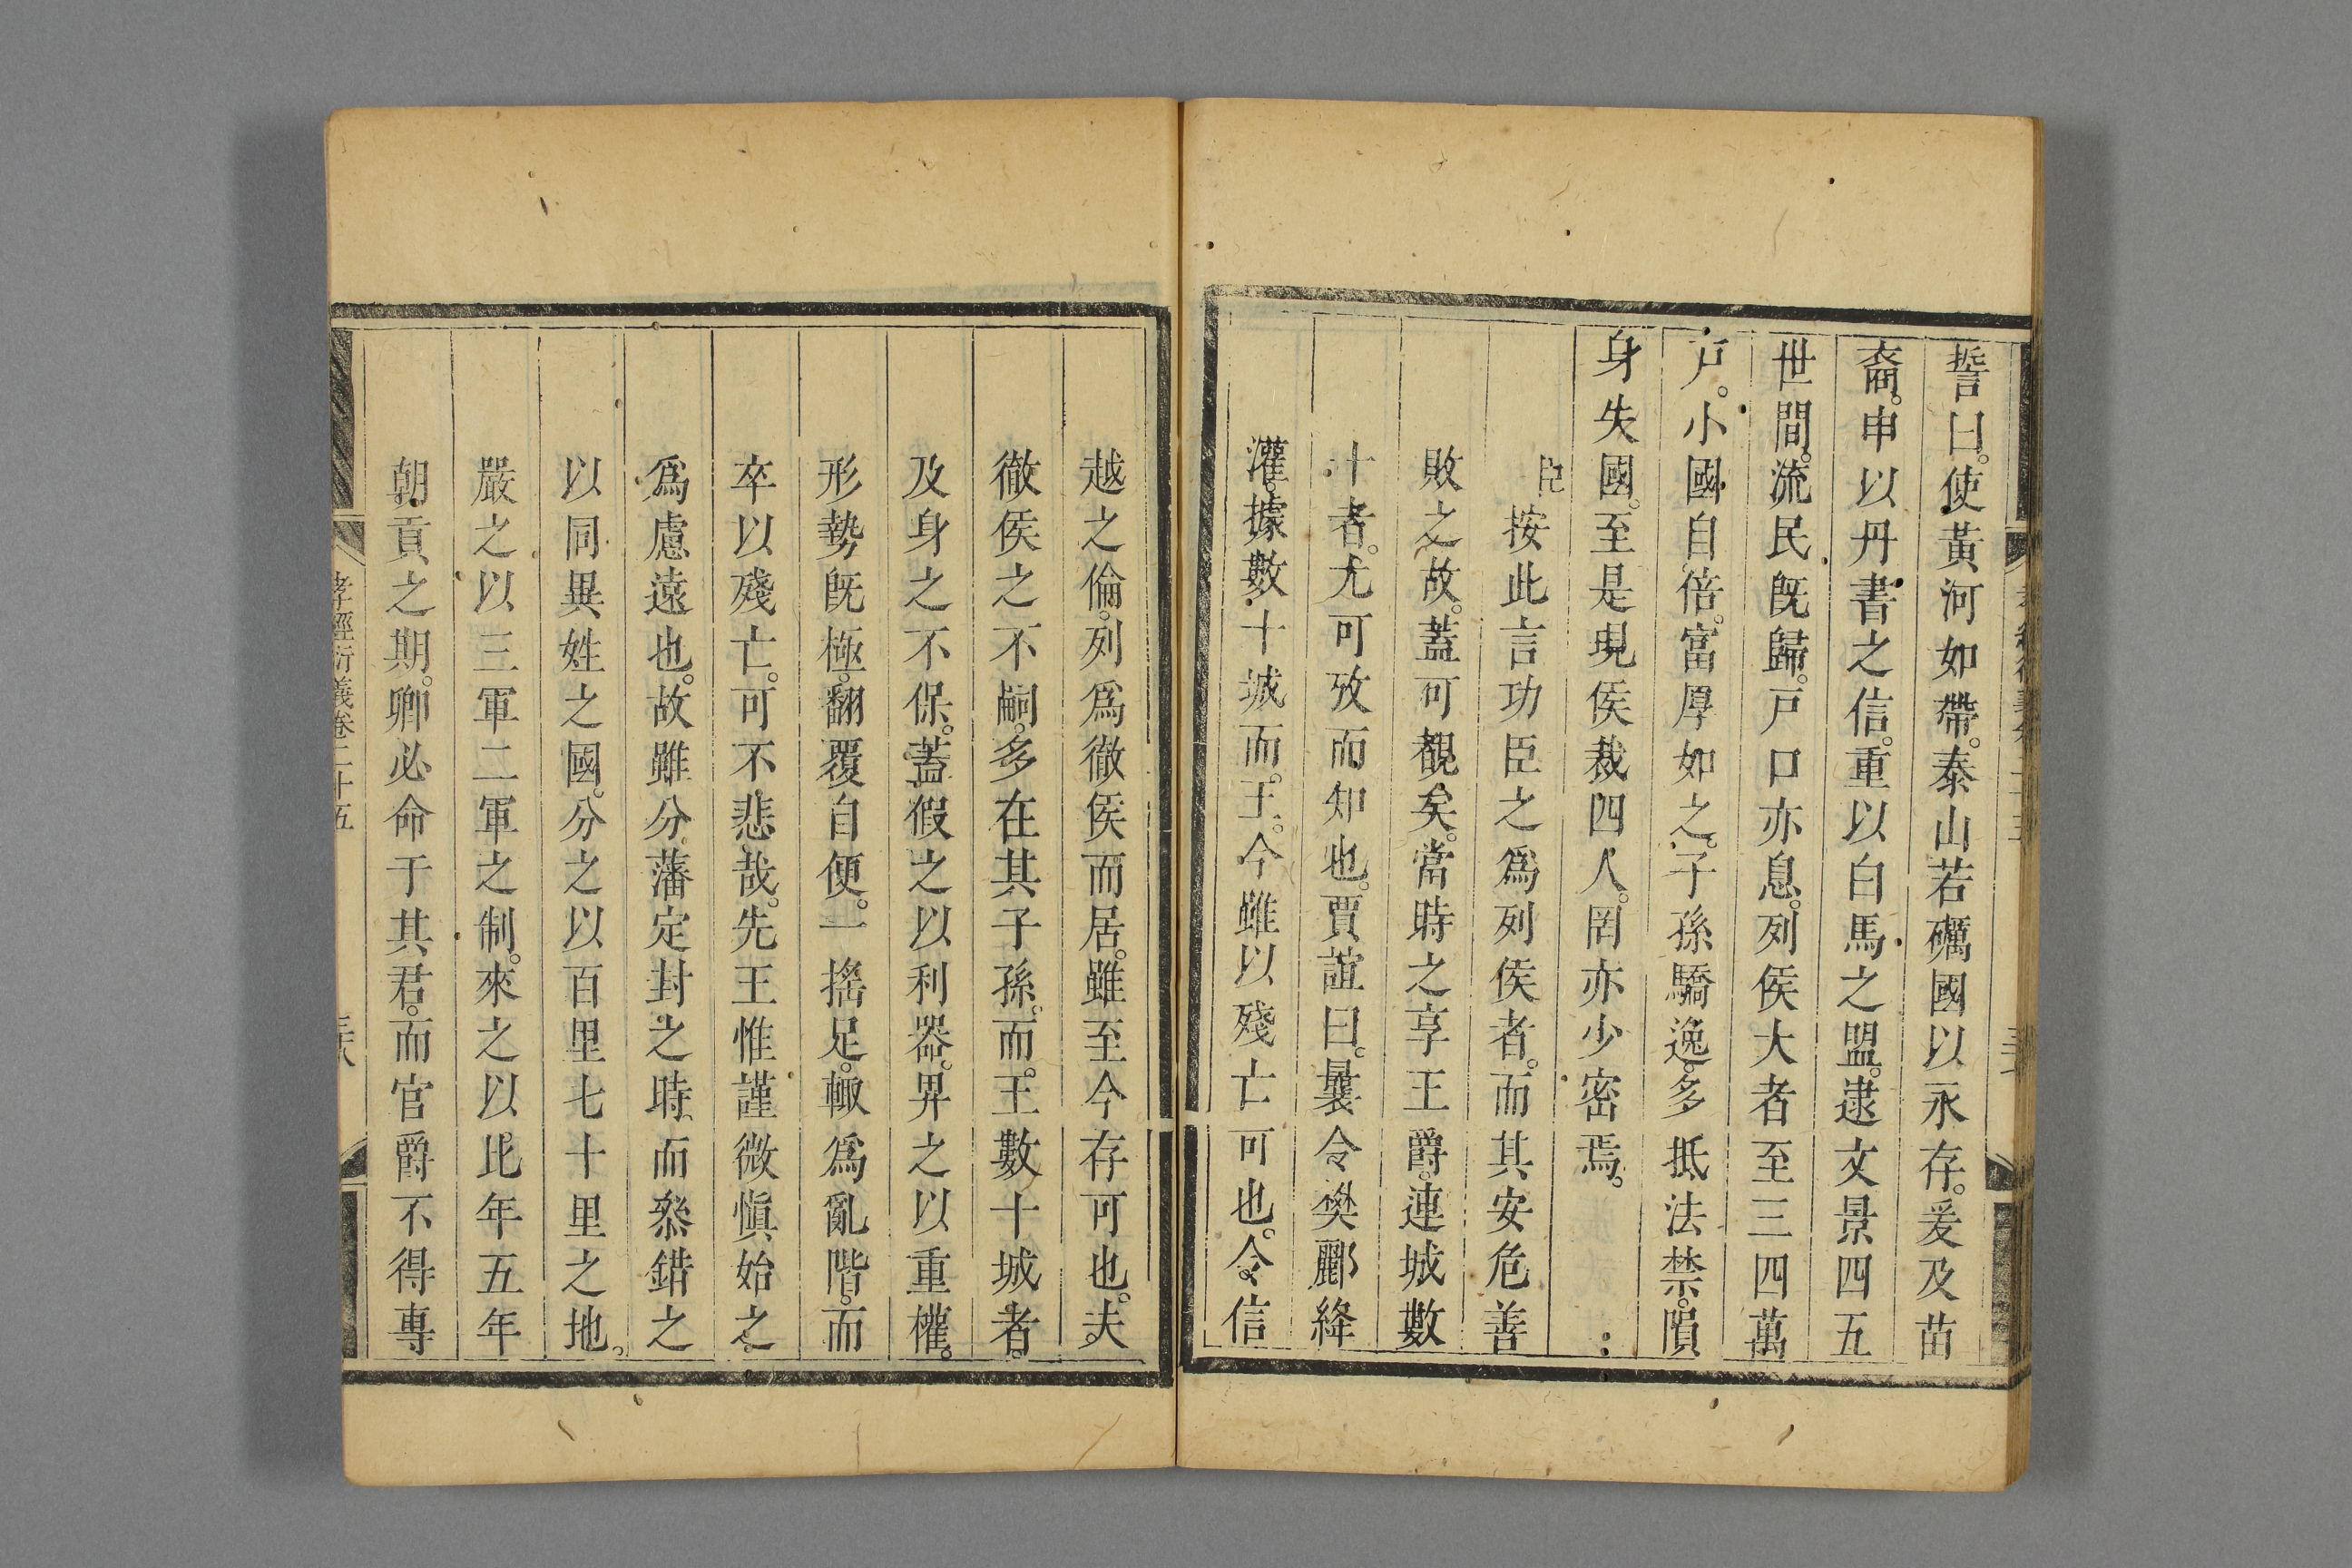 誓曰。使黃河如帶。泰山若礪國以永存。爰及苗
裔。申以丹書之信。重以白馬之盟。逮文景四五
世間。流民旣歸。戸口亦息。列侯大者至三四萬
戸。小國自倍。富厚如之。子孫驕逸。多抵法禁。隕
身失國。至是見侯裁四人。罔亦少密焉。
臣按此言功臣之爲列侯者。而其安危善
敗之故。蓋可覩矣。當時之享王爵。連城數
十者。尤可攷而知也。賈誼曰。曩令樊酈絳
灌。據數十城而王。今雖以殘亡可也。令信
越之倫。列爲徹侯而居。雖至今存可也。夫
徹侯之不嗣。多在其子孫。而王數十城者。
及身之不保。蓋假之以利器。畀之以重權。
形勢旣極。翻覆自便。一搖足。輙爲亂階。而
卒以殘亡。可不悲哉。先王惟謹微愼始之
爲慮遠也。故雖分藩定封之時。而叅錯之
以同異姓之國。分之以百里七十里之地。
嚴之以三軍二軍之制。來之以比年五年
朝貢之期。卿必命于其君。而官爵不得專
孝經衍義卷二十五
三十八